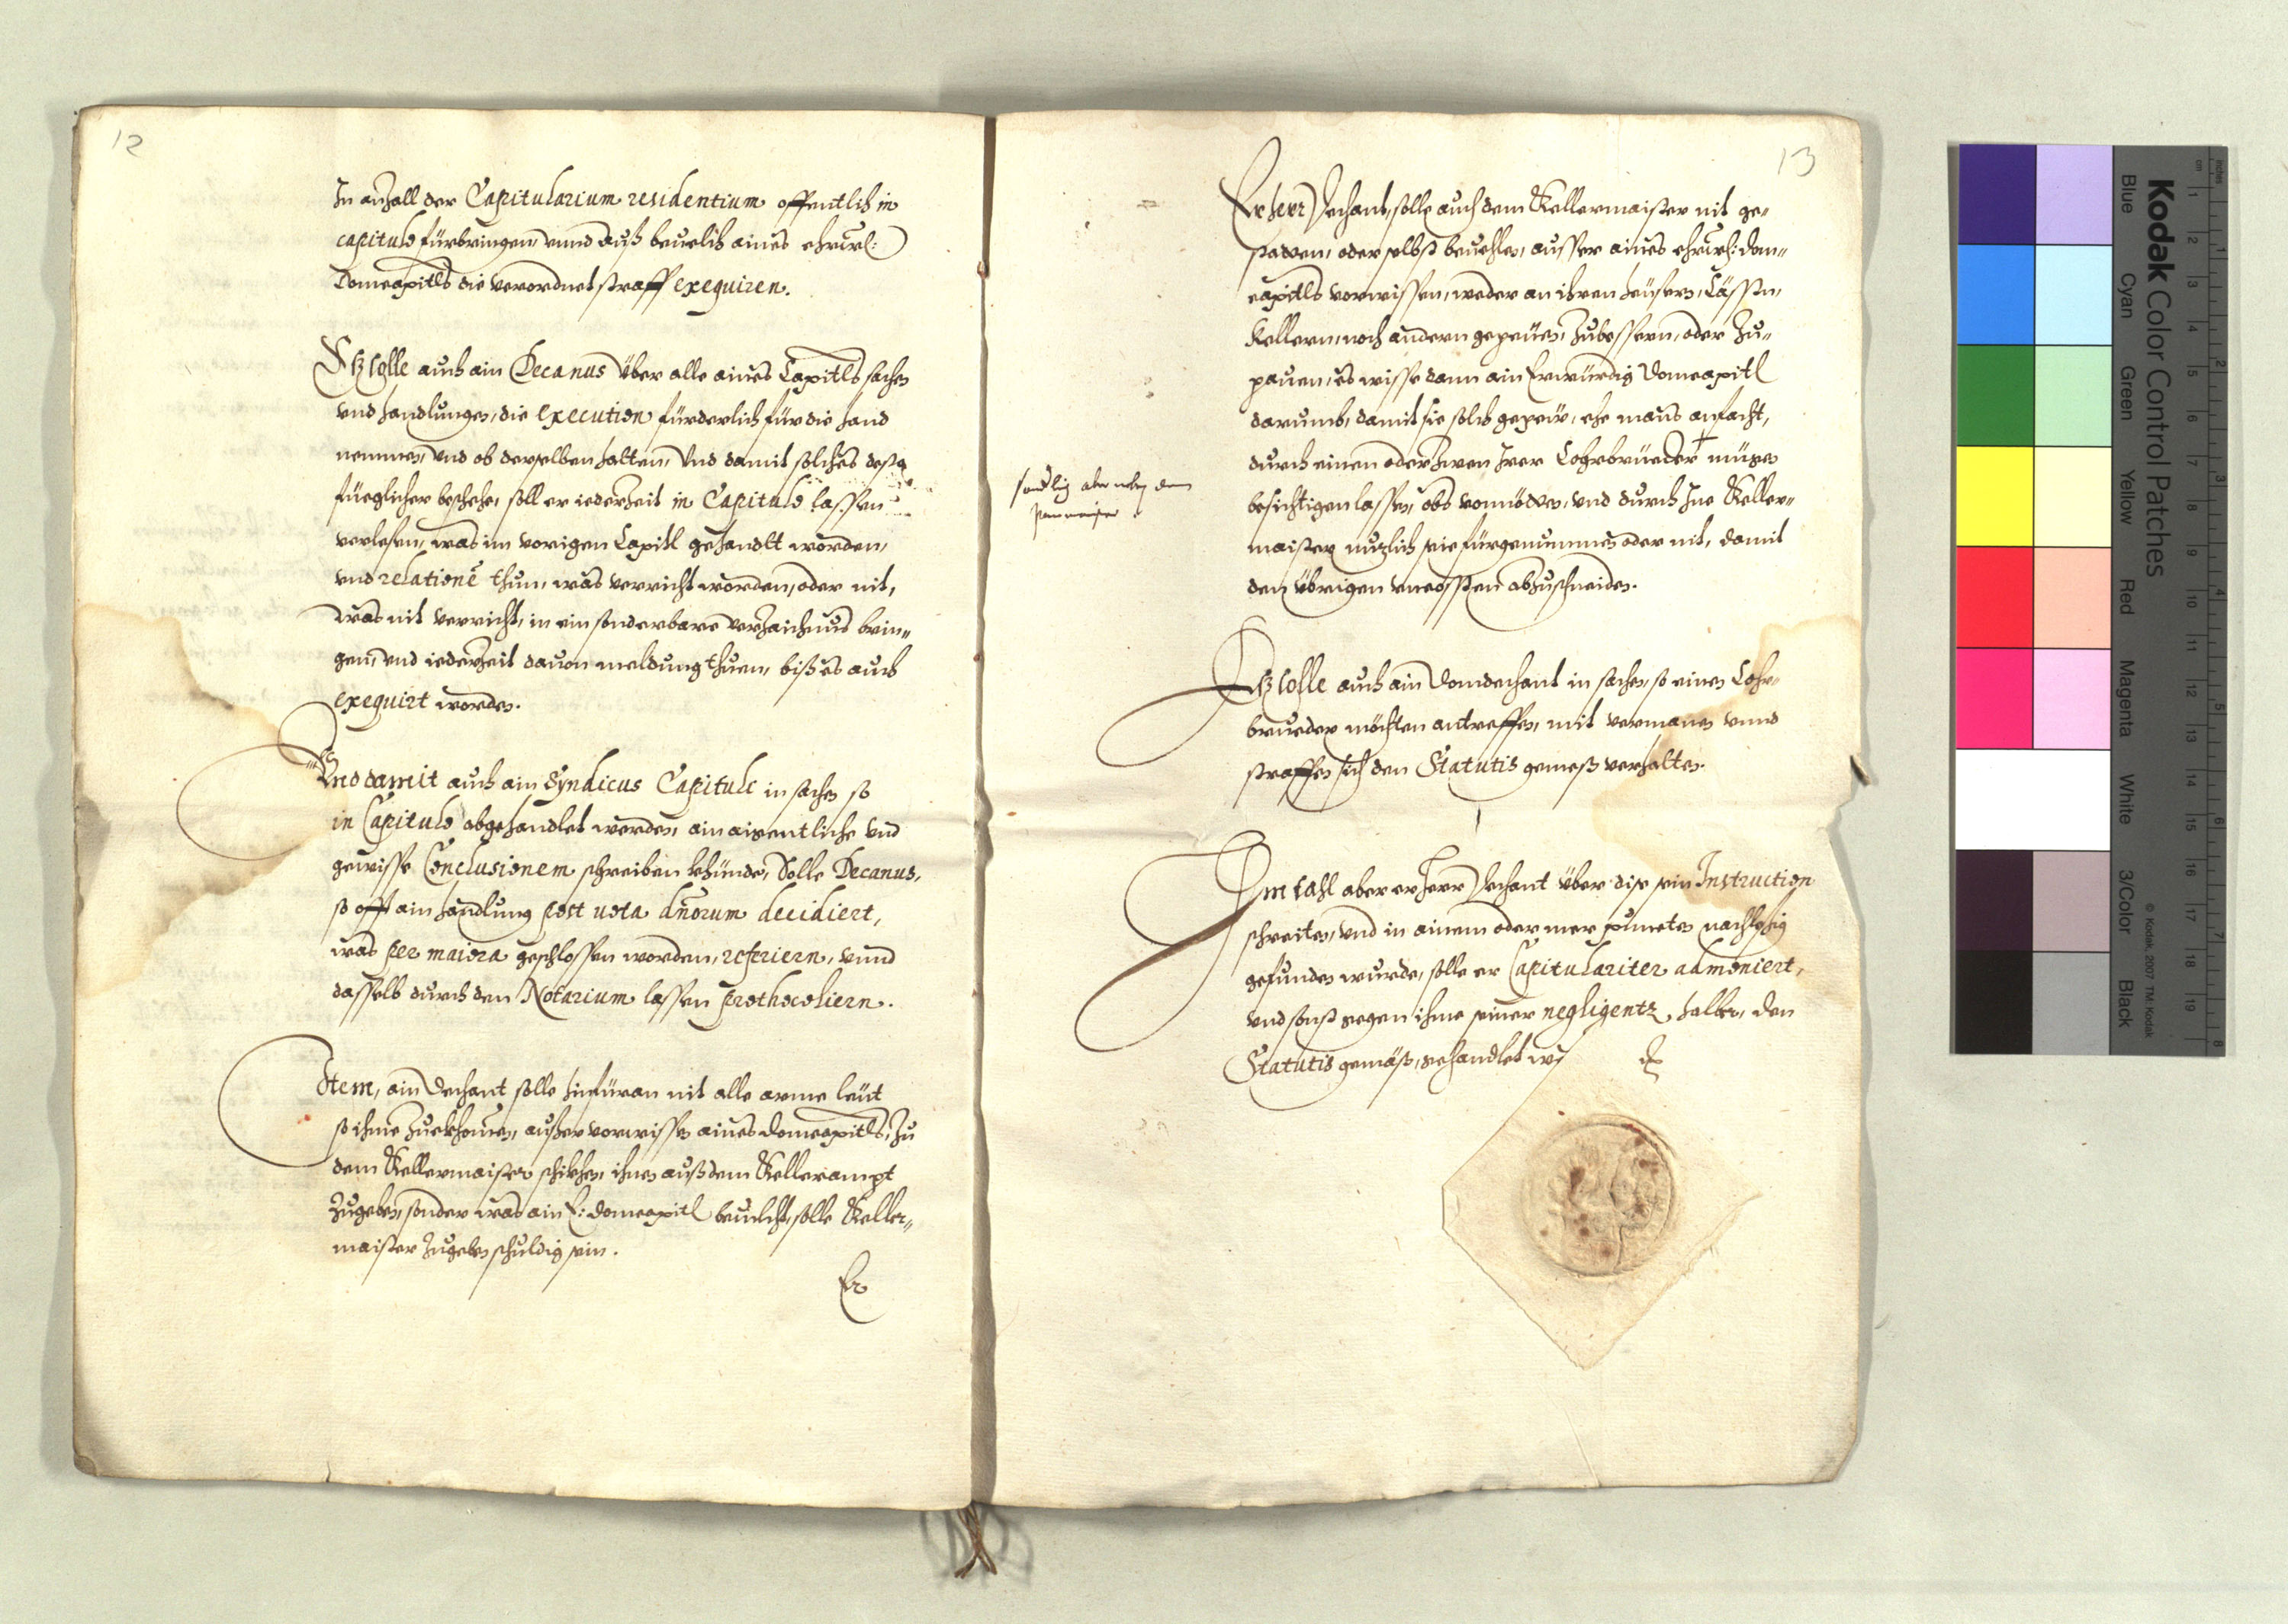 12
In anzall der Capitularium residentium offentlich in
capitulo fürbringen, vnnd auß beuelch aines ehrwl:
Domcapitls die verordnet straff exequiren.
Es solle auch ain Decanus über alle aines Capitls sachen
vnd handlungen, die execution fürderlich für die hand
nemmen, vnd ob derselben halten, Vnd damit solches dest
füeglicher beschehe, soll er iederzeit in Capitulo lassen
verlesen, was im vorigen Capitl gehandlt worden,
vnd relationē thun, was verricht worden, oder nit,
was nit verricht, in ein sonderbare verzaichnus brin„
gen, vnd iederzeit dauon meldung thuen, biß es auch
exequirt worden.
Vnd damit auch ain Syndicus Capituli in sachen so
in Capitulo abgehandlet werden, ain aigentliche vnd
gewisse Conclusionem schreiben khünde, Solle Decanus,
so offt ain handlung post uota dn̄orum decidiert,
was per maiora geschlossen worden, referiern, vnnd
dasselb durch den Notarium lassen prothocoliern.
Item, ain Dechant solle hinfüran nit alle arme leüt
so ihme zuekhomen, ausser vorwissen aines Domcapitls, zu
dem Kellermaister schikhen, ihnen auß dem Kellerampt
zugeben, sonder was ain E: Domcapitl beuilcht, solle Keller„
maister zugeben schuldig sein.
Er
13
Er herr Dechant, solle auch dem Kellermaister nit ge„
statten, oder selbst beuehlen, ausser aines ehrwl: Dom„
capitls vorwissen, weder an ihren heüsern, Cässtn,
Kellern, noch andern gepeüen, zubessern, oder zu„
pauen, es wisse dann ain Erwürdig Domcapitl
darumb, damit sie solch gepeüw, ehe mans anfacht,
durch einen oder zwen Irer Cohrbrüeder † müsen
besichtigen lassen, obs vonnöten, vnd durch Ine Keller„
maister nuzlich seie fürgenummen oder nit, damit
den übrigen vncossten abzuschneiden.
sondlig aber neben dem
Paumaister
Es solle auch ain Domdechant in sachen, so einen Cohr„
brueder möchten antreffen, mit vermanen vnnd
straffen sich den Statutis gemeß verhalten.
Im fahl aber er Herr Dechant über dise sein Instruction
schreiten, vnd in ainem oder mer puncten nachlesig
gefunden wurde, solle er Capitulariter admoniert,
vnd sonst gegen ihme seiner negligentz halber, den
Statutis gemäß, gehandlet
Kodak Color Control Patches
Blue Cyan Green Yellow Red Magenta White 3/Color Black
© Kodak, 2007 TM: Kodak
inches 1 2 3 4 5 6 7 8
cm 1 2 3 4 5 6 7 8 9 10 11 12 13 14 15 16 17 18 19